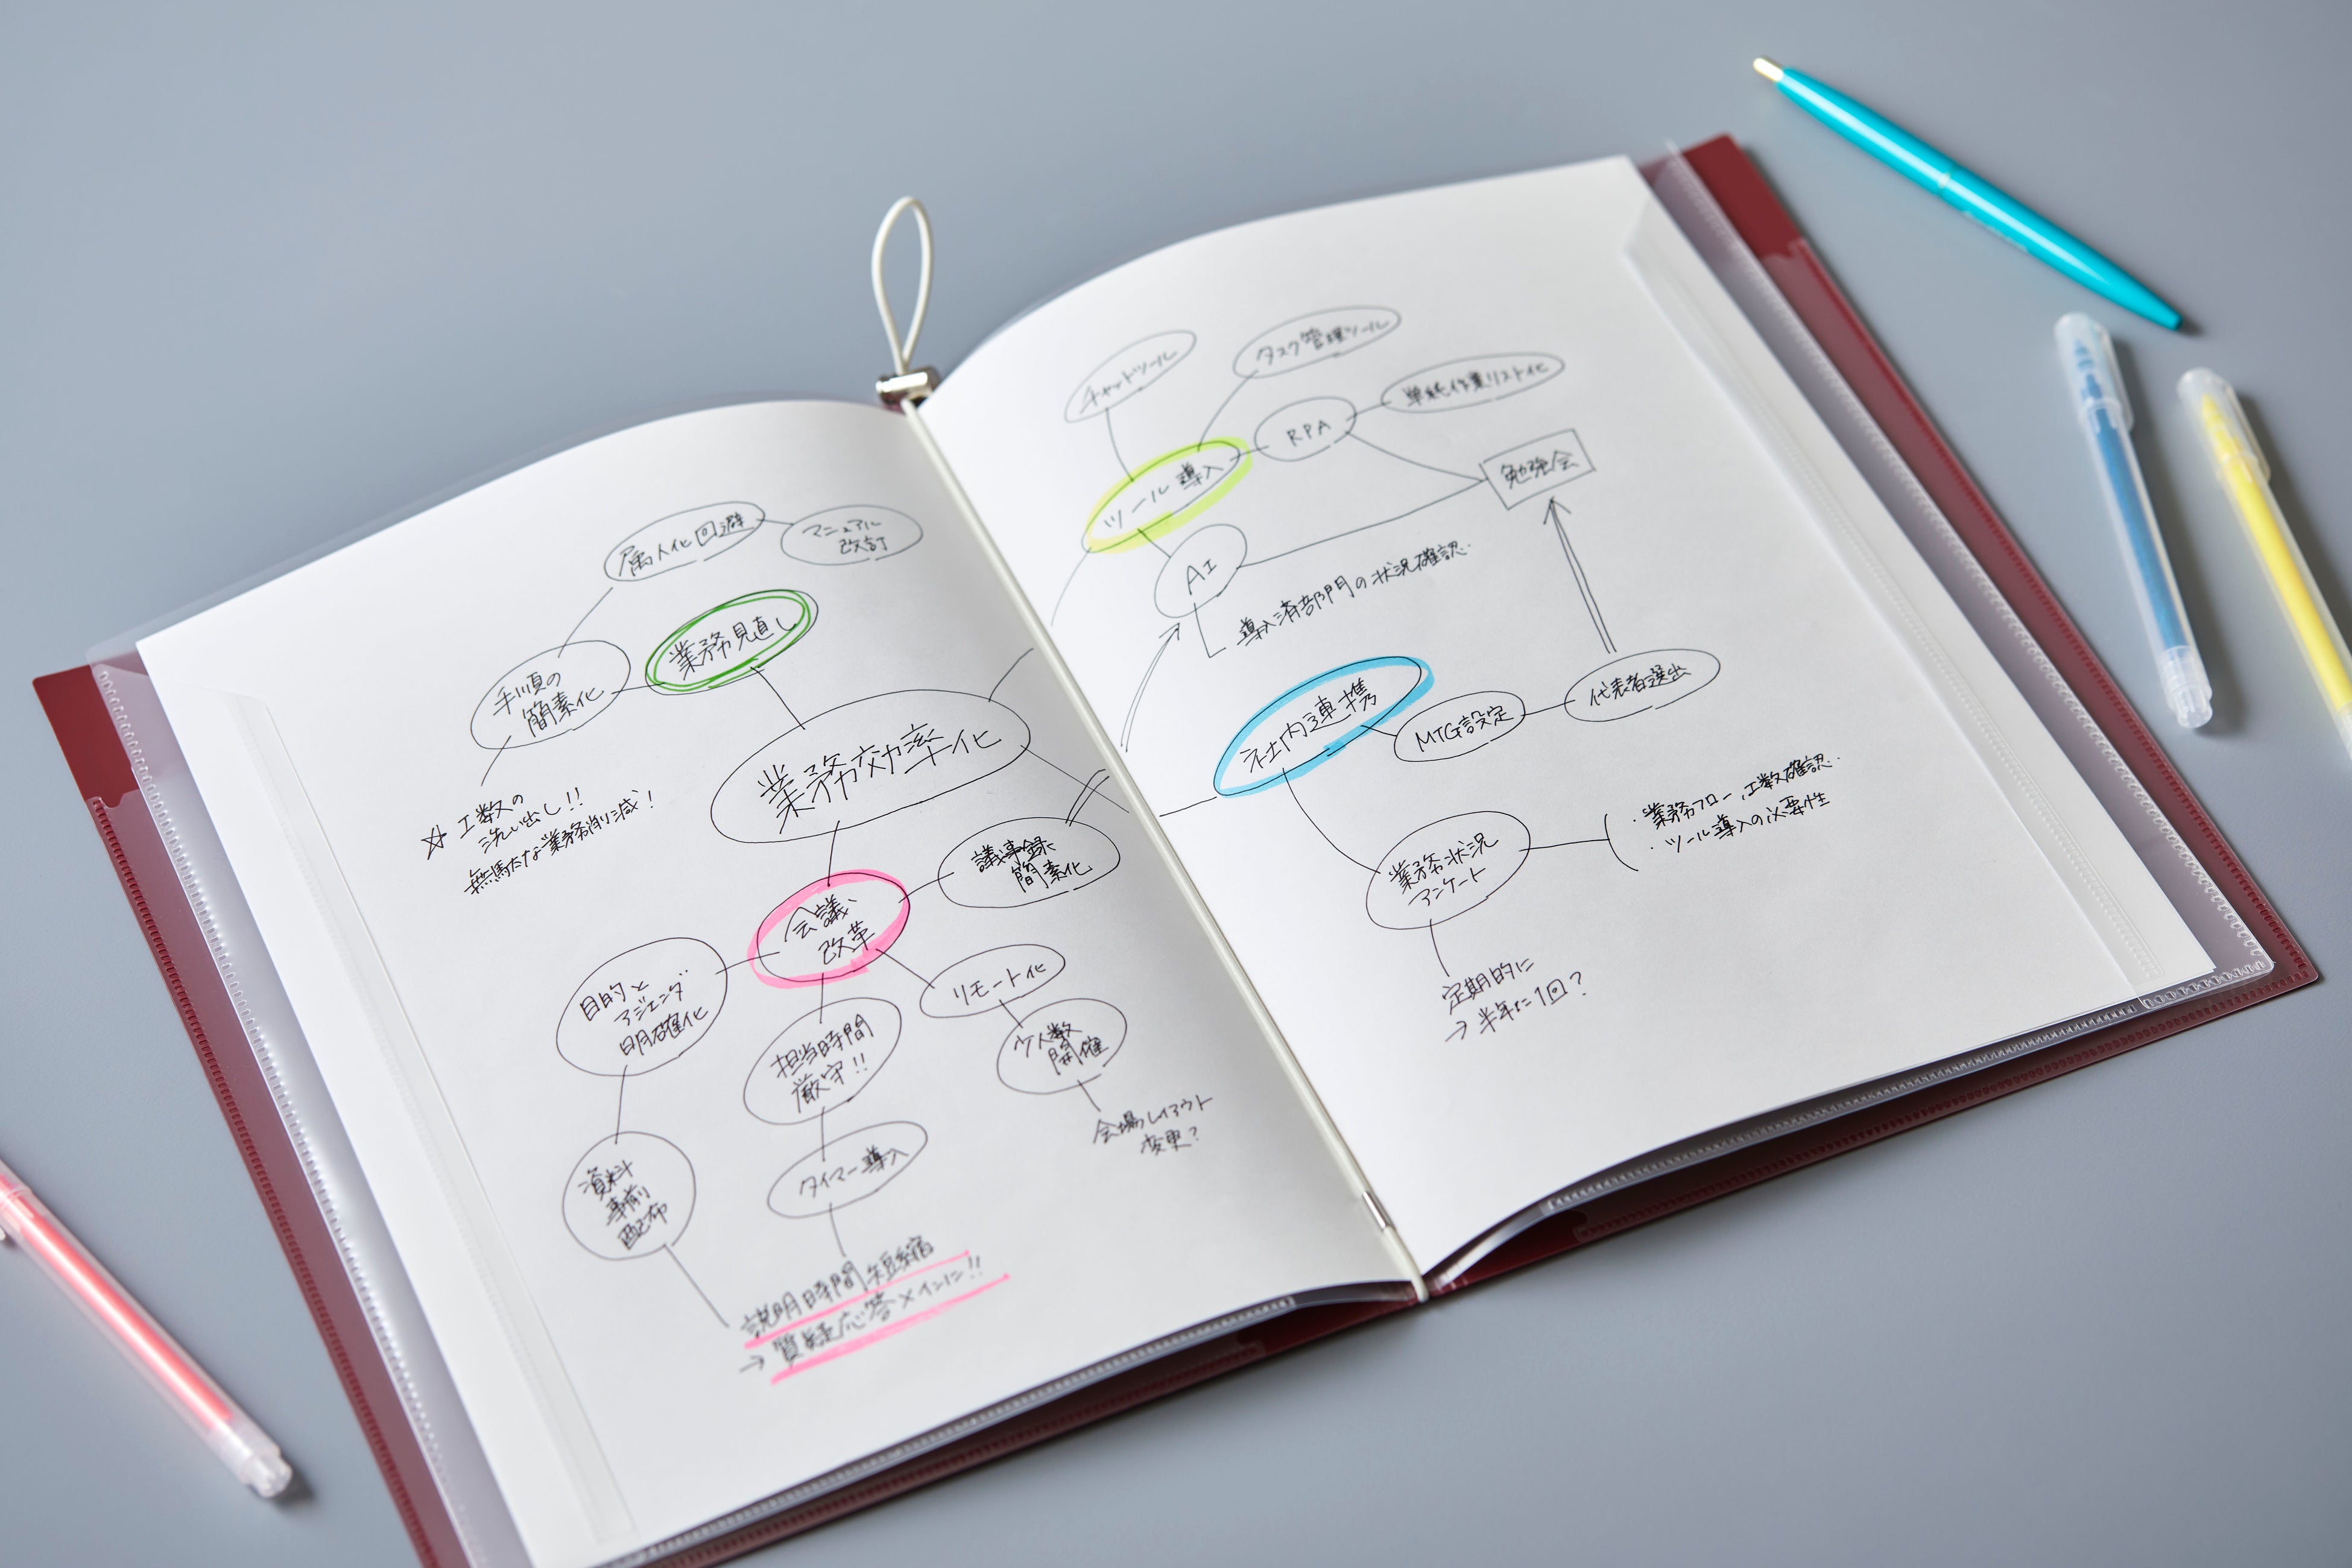 属人化回避
マニュアル
改訂
業務見直し
手順の
簡素化
☆ 工数の
洗い出し!!
無駄な業務削減!
業務効率化
会議
改革
議事録
簡素化
目的と
アジェンダ
明確化
担当時間
厳守!!
リモート化
少人数
開催
会場レイアウト
変更?
資料
事前
配布
タイマー導入
説明時間短縮
→ 質疑応答メインに!!
チャットツール
タスク管理ツール
単純作業リスト化
RPA
ツール導入
勉強会
AI
導入済部門の状況確認.
社内連携
MTG設定
代表者選出
業務状況
アンケート
・業務フロー,工数確認.
・ツール導入の必要性
定期的に
→ 半年に1回?